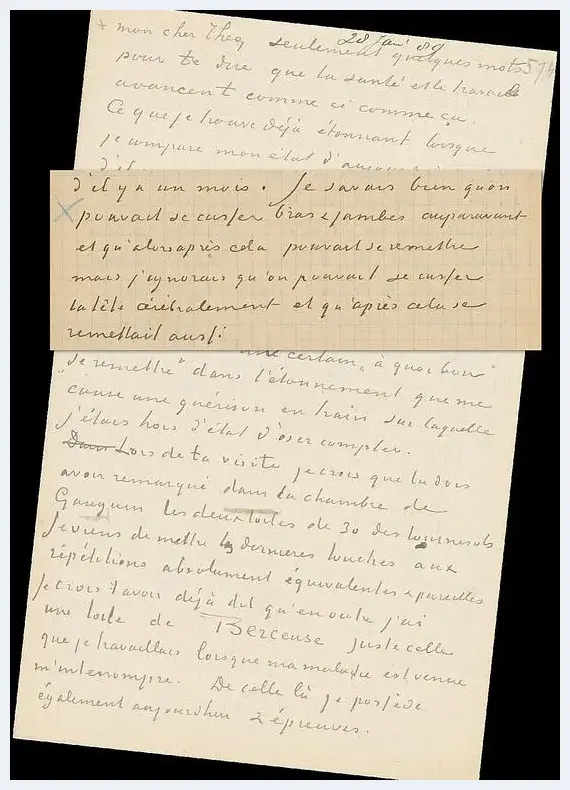 28 Janv 89
mon cher Theo, seulement quelques mots 574
pour te dire que la santé et le travail
avancent comme ci comme ça.
Ce que je trouve déjà étonnant lorsque
je compare mon état d'aujourd'hui
d'il y a un mois. Je savais bien qu'on
pouvait se casser bras & jambes auparavant
et qu'alors après cela pouvait se remettre
mais j'ignorais qu'on pouvait se casser
la tête cérébralement et qu'après cela se
remettait aussi.
une certain „à quoi bon
se remettre” dans l'étonnement que me
cause une guérison en train sur laquelle
j'étais hors d'état d'oser compter.
Dans Lors de ta visite je crois que tu dois
avoir remarqué dans la chambre de
Gauguin les deux toiles de 30 des tournesols
Je viens de mettre les dernieres touches aux
répétitions absolument équivalentes & pareilles
Je crois t'avoir déjà dit qu'en outre j'ai
une toile de Berceuse juste celle
que je travaillais lorsque ma maladie est venue
m'interrompre. De celle là je possède
également aujourdhui 2 épreuves.